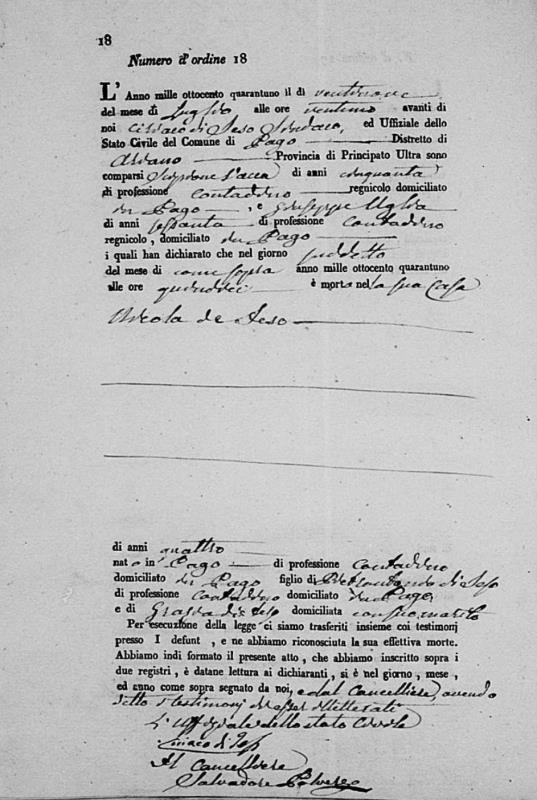 18
Numero d'ordine 18
L'Anno mille ottocento quarantuno il dì ventinove
del mese di Luglio alle ore ventuno avanti di
noi Ciriaco di Teso Sindaco, ed Uffiziale dello
Stato Civile del Comune di Pago Distretto di
Ariano Provincia di Principato Ultra sono
comparsi Scipione di anni cinquanta
di professione contadino regnicolo domiciliato
in Pago, e Giuseppe Uglia
di anni sessanta di professione contadino
regnicolo, domiciliato in Pago
i quali han dichiarato che nel giorno suddetto
del mese di come sopra anno mille ottocento quarantuno
alle ore quindici è morto nella sua Casa
Nicola de Teso
di anni quattro
nato in Pago di professione contadino
domiciliato in Pago figlio di di Teso
di professione contadino domiciliato in Pago
e di Grazia di Teso domiciliata con suo marito
Per esecuzione della legge ci siamo trasferiti insieme coi testimonj
presso l defunt , e ne abbiamo riconosciuta la sua effettiva morte.
Abbiamo indi formato il presente atto, che abbiamo inscritto sopra i
due registri, è datane lettura ai dichiaranti, si è nel giorno, mese,
ed anno come sopra segnato da noi, e dal Cancelliere, avendo
detto i testimonj di esser illetterati
L'uffiziale dello stato Civile
Ciriaco di Teso
Il Cancelliere
Salvadore